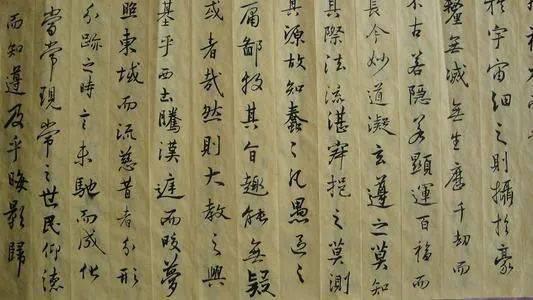 於宇宙細之則攝於豪
釐無滅無生歷千劫而
不古若隱若顯運百福而
長今妙道凝玄遵之莫知
其際法流湛寂挹之莫測
其源故知蠢々凡愚區々
庸鄙投其旨趣能無疑
或者哉然則大教之興
基乎西土騰漢庭而皎夢
照東域而流慈昔者分形
分跡之時言未馳而成化
當常現常之世民仰德
而知遵及乎晦影歸